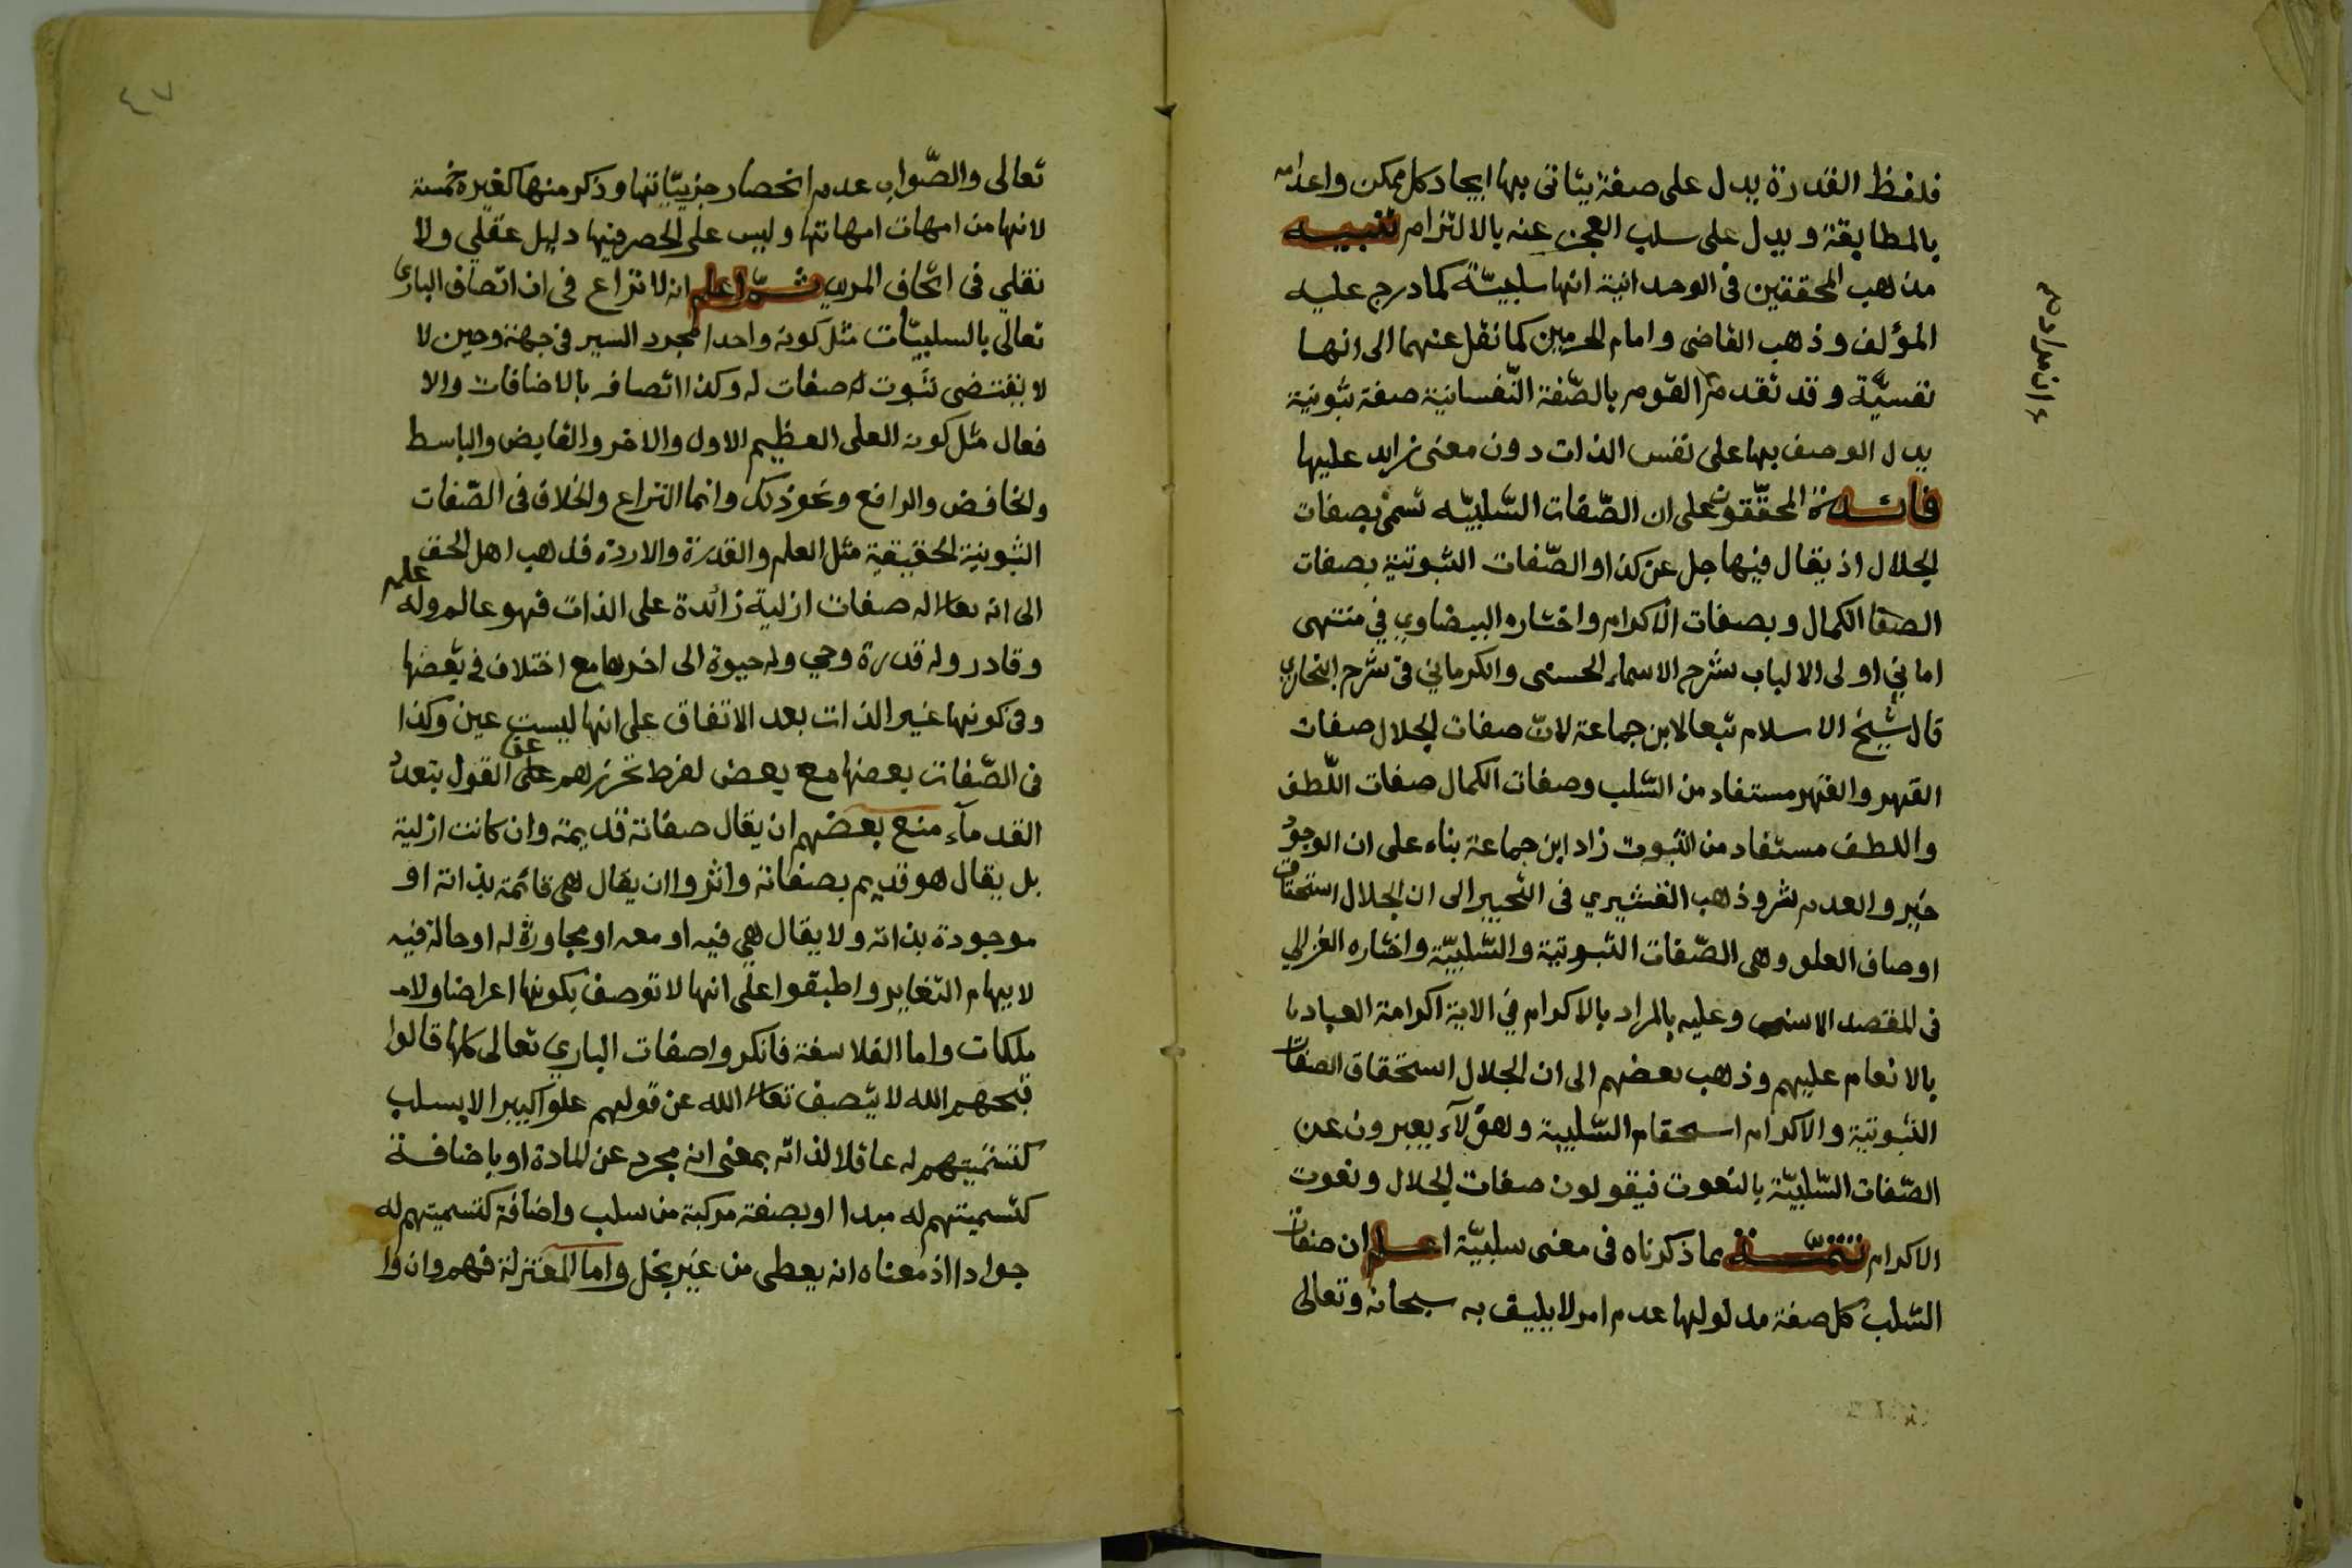 فلفظ القدرة يدل على صفة يتاتى بها ايجاد كل ممكن واعدامه
بالمطابقة ويدل على سلب العجز عنه بالالتزام تنبيه
مذهب المحققين فى الوحدانية انها سلبيّة كما درج عليه
المؤلف وذهب القاضى وامام الحرمين كما نقل عنهما الى انها
نفسيّة وقد تقدم القوم بالصّفة النّفسانية صفة ثبوتية
يدل الوصف بها على نفس الذات دون معنى زايد عليها
فائدة المحقّقون على ان الصّفات السّلبيّه تسمى بصفات
الجلال اذ يقال فيها جل عن كذا والصّفات الثبوتية بصفات
الصفا الكمال وبصفات الاكرام واختاره البيضاوي في منتهى
اماني اولى الالباب شرح الاسماء الحسنى والكرماني فى شرح البخاري
قال شيخ الاسلام تبعا لابن جماعة لانّ صفات الجلال صفات
القهر والقهر مستفاد من السّلب وصفات الكمال صفات اللّطف
واللطف مستفاد من الثبوت زاد ابن جماعة بناء على ان الوجود
خير والعدم شر وذهب القشيري فى التحبير الى ان الجلال استحقاق
اوصاف العلو وهى الصّفات الثبوتية والسّلبيّة واختاره الغزالي
فى المقصد الاسنى وعليه بالمراد بالاكرام في الاية اكرامة العباد
بالانعام عليهم وذهب بعضهم الى ان الجلال استحقاق الصفات
الثبوتية والاكرام السّلبية وهؤلآء يعبرون عن
الصّفات السّلبيّة بالنعوت فيقولون صفات الجلال ونعوت
الاكرام تتمّة بما ذكرناه فى معنى سلبيّة اعلم ان صفات
السّلب كل صفة مدلولها عدم امر لا يليق به سبحانه وتعالى
٤٧
تعالى والصّواب عدم انحصار جزييّاتها وذكر منها كغيره خمسة
لانها من امهات امهاتها وليس على الحصر فيها دليل عقلي ولا
نقلي فى اتحاف المريد ثمّ اعلم انه لا نزاع فى ان اتصاف البارى
تعالى بالسلبيّات مثل كونه واحدا مجرد السير فى جهة وحين لا
لا يقتضى ثبوت له صفات له وكذا اتصافه بالاضافات والا
فعال مثل كونه العلى العظيم الاول والاخر والقابض والباسط
والخافض والرافع ونحو ذلك وانما النزاع والخلاف فى الصّفات
الثبوتية الحقيقية مثل العلم والقدرة والاردة فذهب اهل الحق
الى انه تعالى له صفات ازلية زائدة على الذات فهو عالم وله علم
وقادر وله قدرة وحي وله حيوة الى اخرها مع اختلاف في بعضها
وفى كونها غير الذات بعد الاتفاق على انها ليست عين وكذا
فى الصّفات بعضها مع بعض لفرط تحرزهم على عن القول بتعدد
القدمآء منع بعضهم ان يقال صفاته قديمة وان كانت ازلية
بل يقال هو قديم بصفاته واثروا ان يقال هى قائمة بذاته او
موجودة بذاته ولا يقال هي فيه او معه او مجاورة له او حالة فيه
لايهام التغاير واطبقوا على انها لا توصف بكونها اعراضا ولا
ملكات واما الفلاسفة فانكروا صفات الباري تعالى كلها قالوا
قبحهم الله لا يتصف تعالى الله عن قولهم علوا كبيرا الا بسلب
كتسميتهم له عاقلا لذاته بمعنى انه مجرد عن المادة او باضافة
كتسميتهم له مبدا او بصفة مركبة من سلب واضافة كتسميتهم له
جوادا اذ معناه انه يعطى من غير بخل واما المعتزلة فهم وان وا